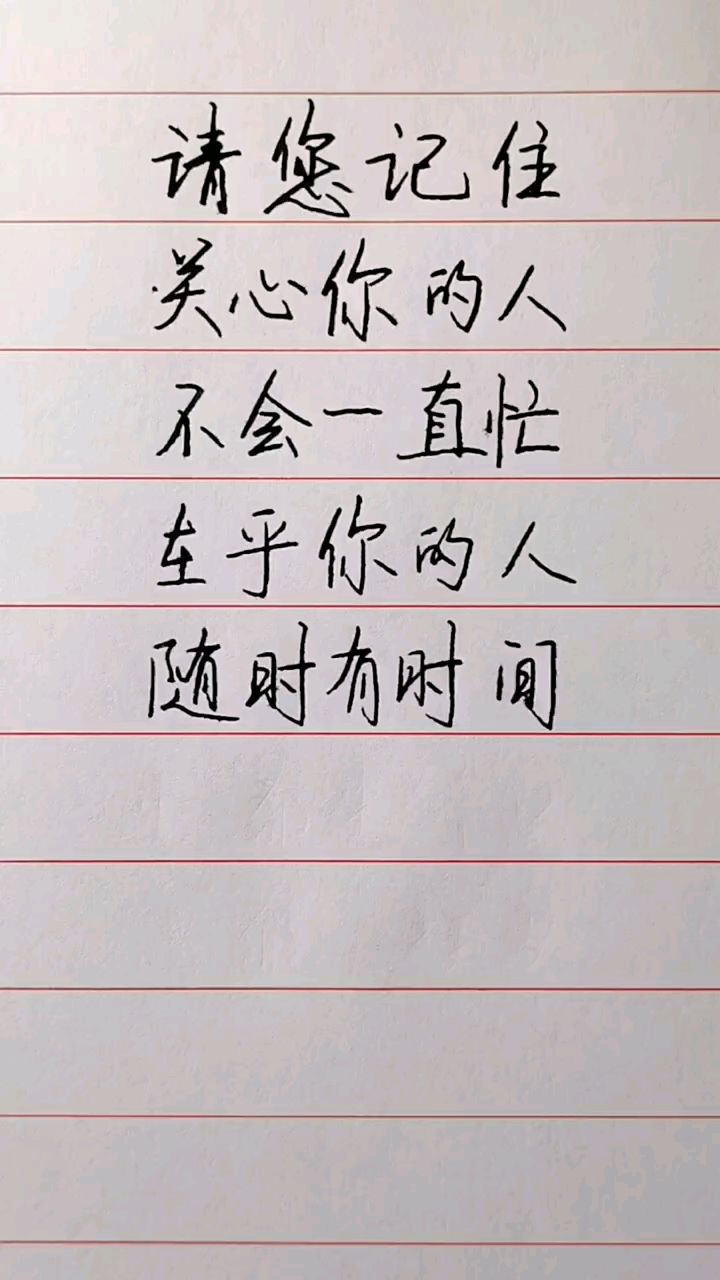 请您记住
关心你的人
不会一直忙
在乎你的人
随时有时间